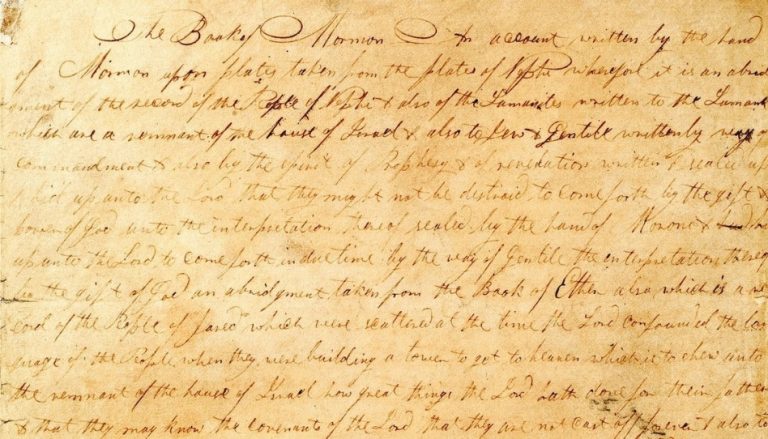 The Book of Mormon An account written by the hand
of Mormon upon plates taken from the plates of Nephi wherefore it is an abrid
gment of the record of the People of Nephi & also of the Lamanites written to the Laman
which are a remnant of the house of Israel & also to Jew & Gentile written by way of
commandment & also by the spirit of Prophesy & of revelation written & sealed up
& hid up unto the Lord that they might not be distroid to come forth by the gift &
power of God unto the interpretation thereof sealed by the hand of Moroni & hid
up unto the Lord to come forth in due time by the way of Gentile the interpretation thereof
by the gift of God an abridgment taken from the Book of Ether also which is a re
cord of the People of Jared which were scattered at the time the Lord confounded the lan
guage of the People when they were building a tower to get to heaven which is to shew unto
the remnant of the house of Israel how great things the Lord hath done for their father
& that they may know the covenants of the Lord that they are not cast of forever & also to